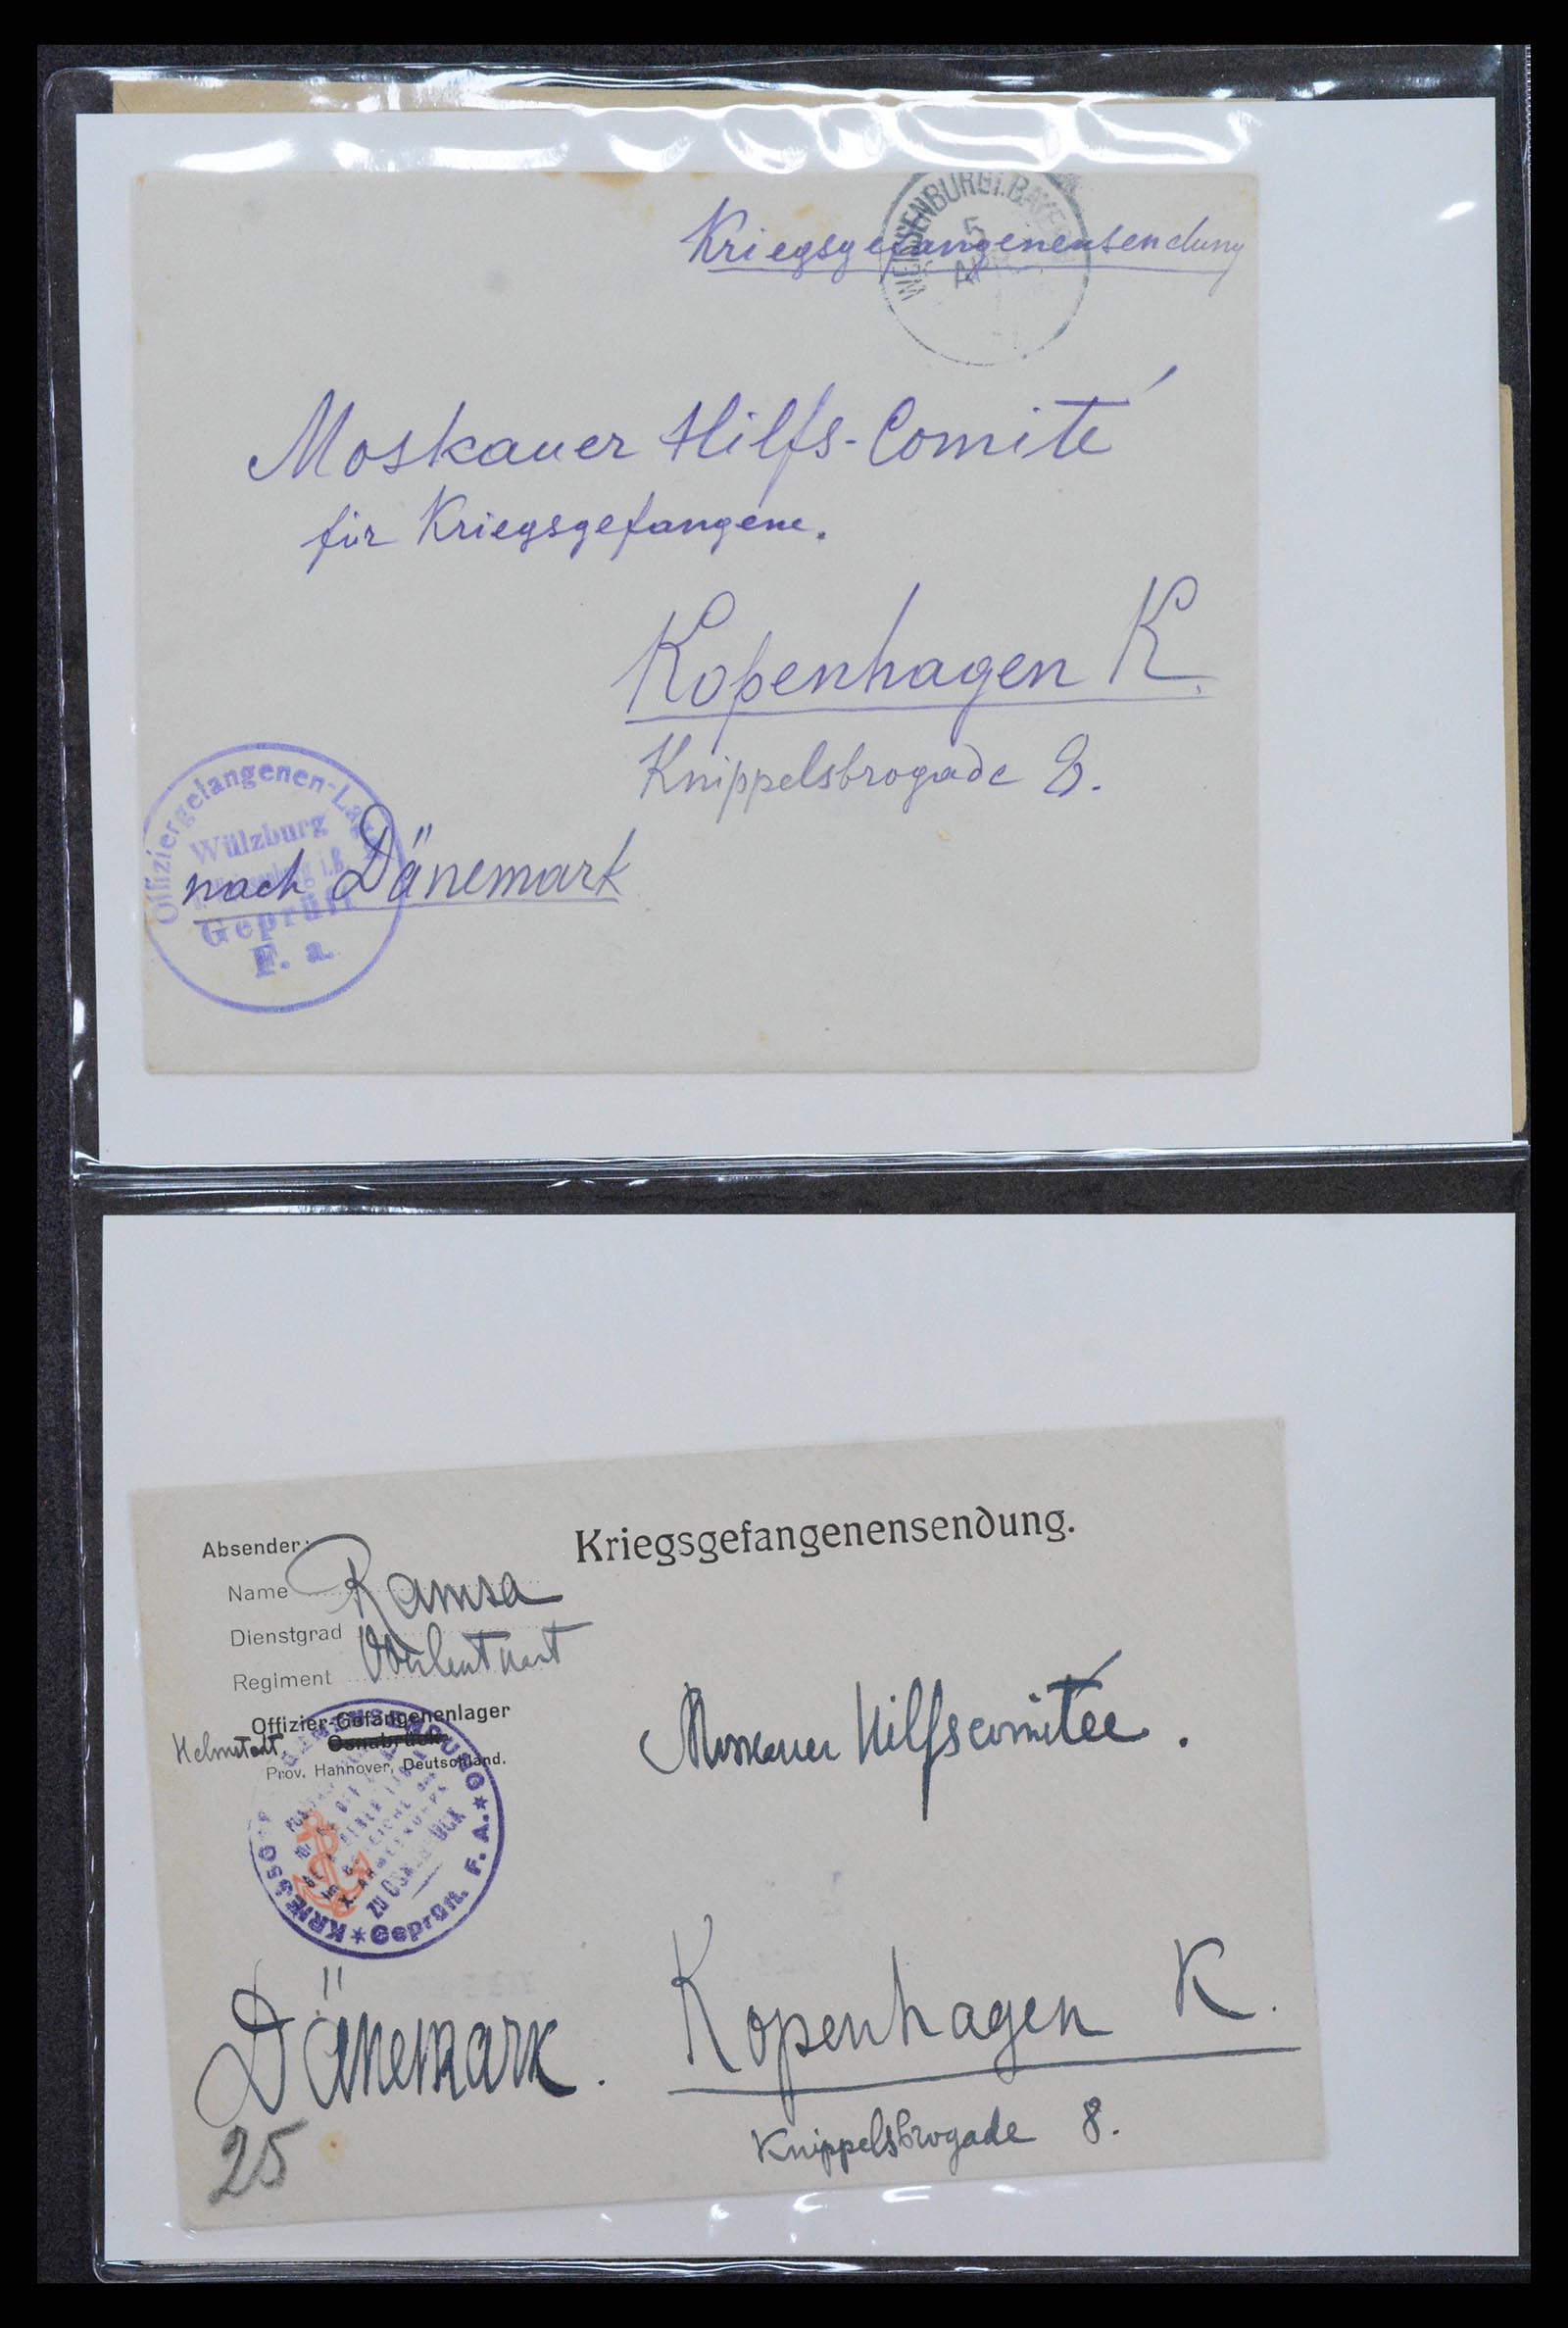 WEISSENBURG I. BAYERN
5
Kriegsgefangenensendung
Moskauer Hilfs-Comité
für Kriegsgefangene.
Kopenhagen K.
Knippelsbrogade 8.
Offiziergefangenen-Lager
Wülzburg
Geprüft
F. a.
nach Dänemark
Kriegsgefangenensendung.
Absender:
Name Ramsa
Dienstgrad Oberleutnant
Regiment
Offizier-Gefangenenlager
Helmstedt, Osnabrück
Prov. Hannover, Deutschland.
ZU OSNABRÜCK
Geprüft. F. A.
Moskauer Hilfscomitée.
Dänemark.
Kopenhagen K.
Knippelsbrogade 8.
25